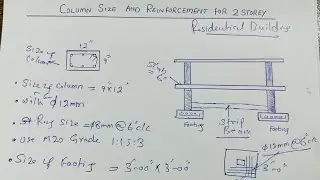 COLUMN SIZE AND REINFORCEMENT FOR 2 STOREY
Residential Building
Size of Column
12"
9"
• Size of Column = 9"X12"
• with ϕ12mm
• Ring Size = ϕ8mm@6"c/c
• Use M20 Grade 1:1.5:3
• Size of Footing = 3'-00" X 3'-00"
Slab
= 6"
Footing
Strip
Beam
Footing
ϕ12mm@6"c/c
3'-0"